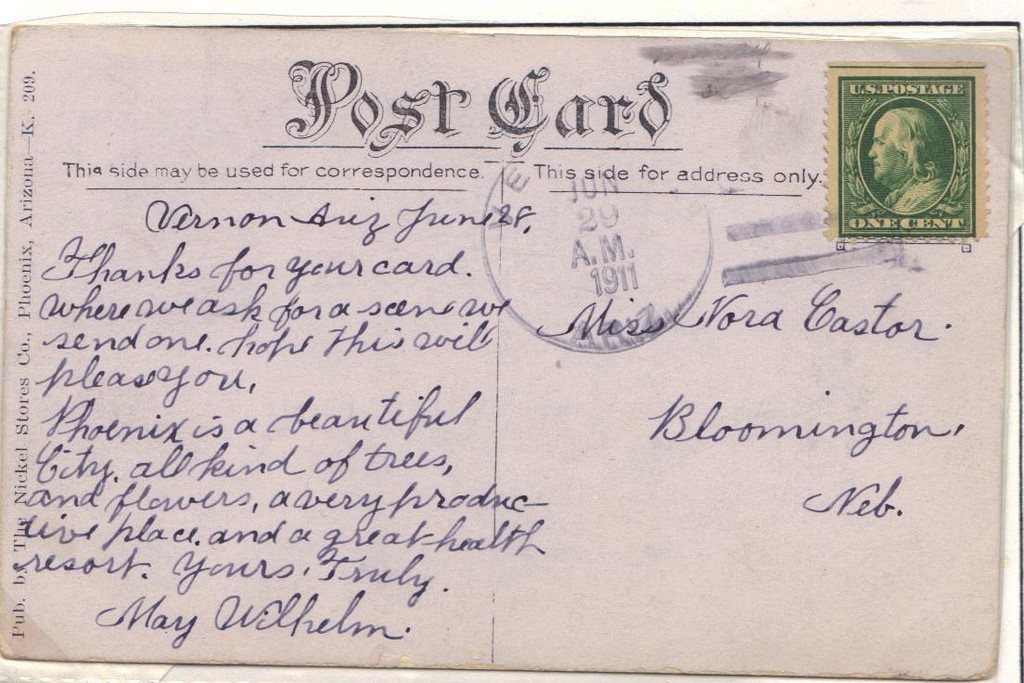 Post Card
This side may be used for correspondence.
This side for address only.
U.S. POSTAGE
ONE CENT
JUN
29
A.M.
1911
ARIZ.
Vernon Ariz June 28,
Thanks for your card.
where we ask for a scene we
send one. hope this will
please you,
Phoenix is a beautiful
City. all kind of trees,
and flowers, a very produc-
tive place. and a great health
resort. Yours. Truly.
May Wilhelm.
Miss Nora Castor.
Bloomington,
Neb.
Pub. by The Nickel Stores Co., Phoenix, Arizona—K. 209.